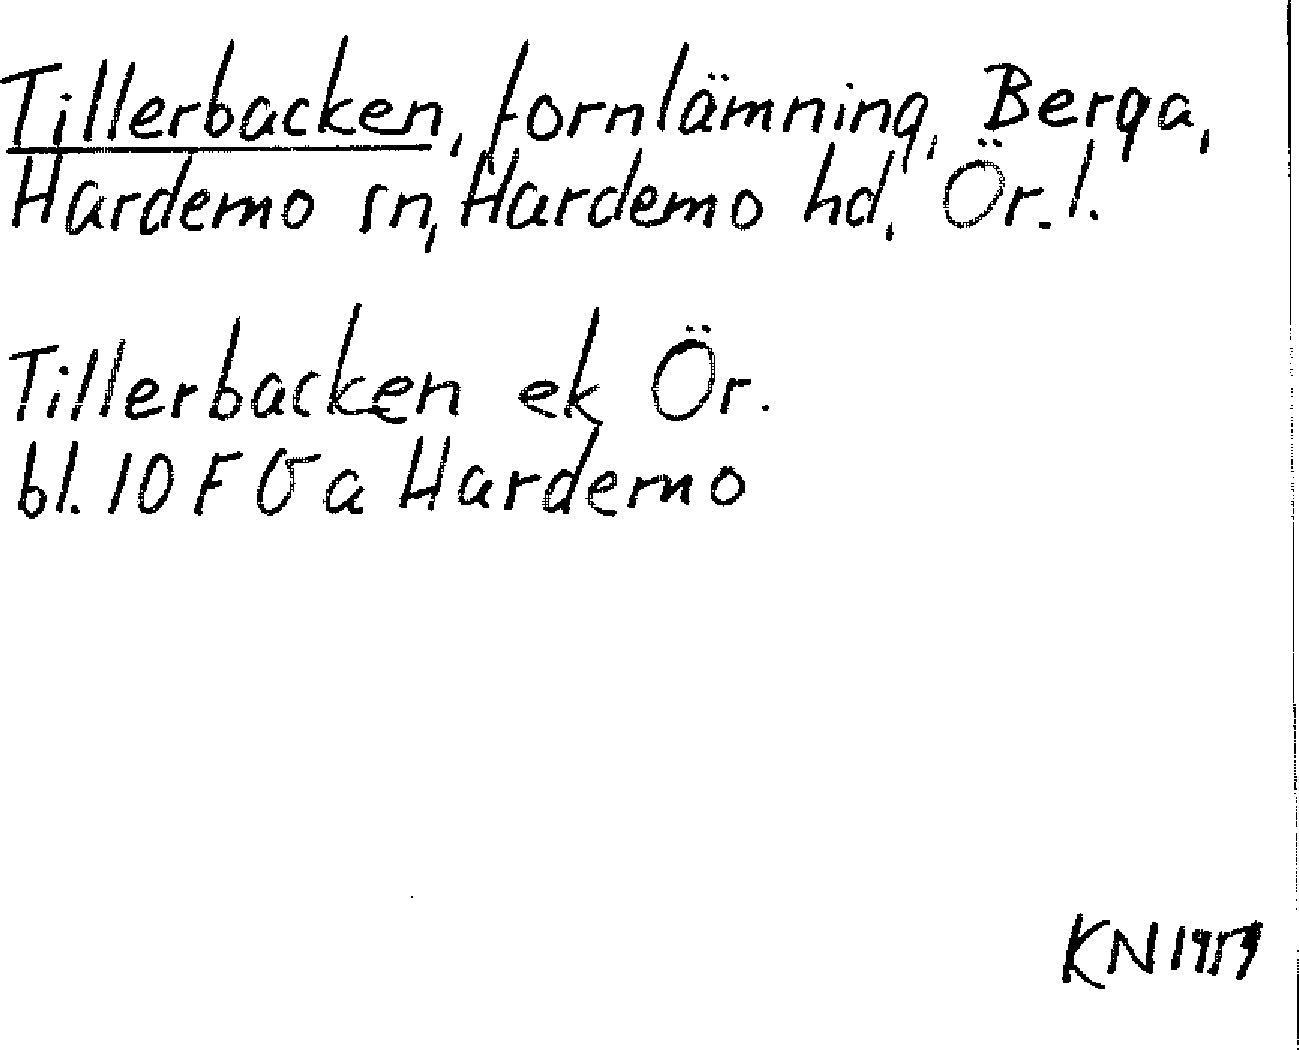 Tillerbacken, fornlämning, Berga,
Hardemo sn, Hardemo hd, Ör. l.
Tillerbacken ek Ör.
bl. 10 F 6 a Hardemo
KN